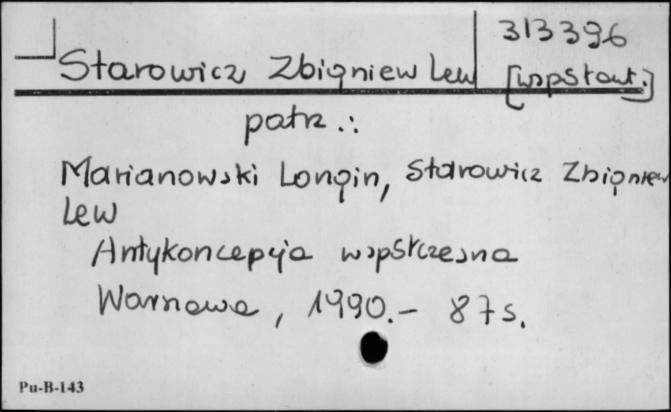 313396
Starowicz Zbigniew Lew [współaut.]
patrz.:
Marianowski Longin, Starowicz Zbigniew
Lew
Antykoncepcja współczesna
Warszawa, 1990.- 87 s.
Pu-B-143